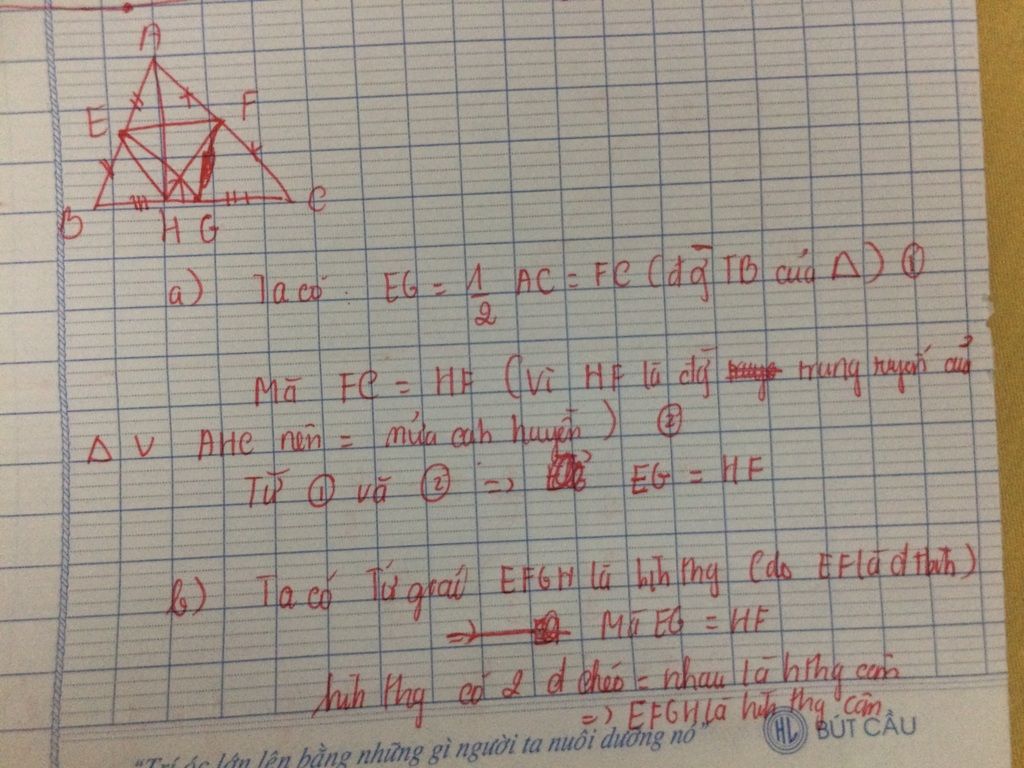 A
E F
B H G C
a) Ta có: EG = 1/2 AC = FC (đg TB của Δ) ①
Mà FC = HF (Vì HF là đg trung tuyến của
Δ V AHC nên = nửa cạh huyền) ②
Từ ① và ② => EG = HF
b) Ta có Tứ giác EFGH là hìh thg (do EF là đ tbìh)
=> Mà EG = HF
hìh thg có 2 đ chéo = nhau là hthg cân
=> EFGH là hìh thg cân
"Trí óc lớn lên bằng những gì người ta nuôi dưỡng nó"
HL BÚT CẦU